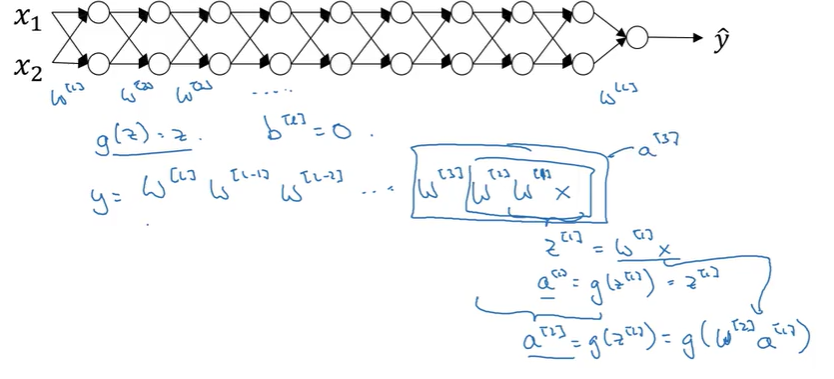 x₁
x₂
ŷ
w^[1] w^[2] w^[3] ..... w^[L]
g(z) = z. b^[l] = 0.
a^[3]
y = w^[L] w^[L-1] w^[L-2] ... w^[3] w^[2] w^[1] x
z^[1] = w^[1] x
a^[1] = g(z^[1]) = z^[1]
a^[2] = g(z^[2]) = g(w^[2] a^[1])